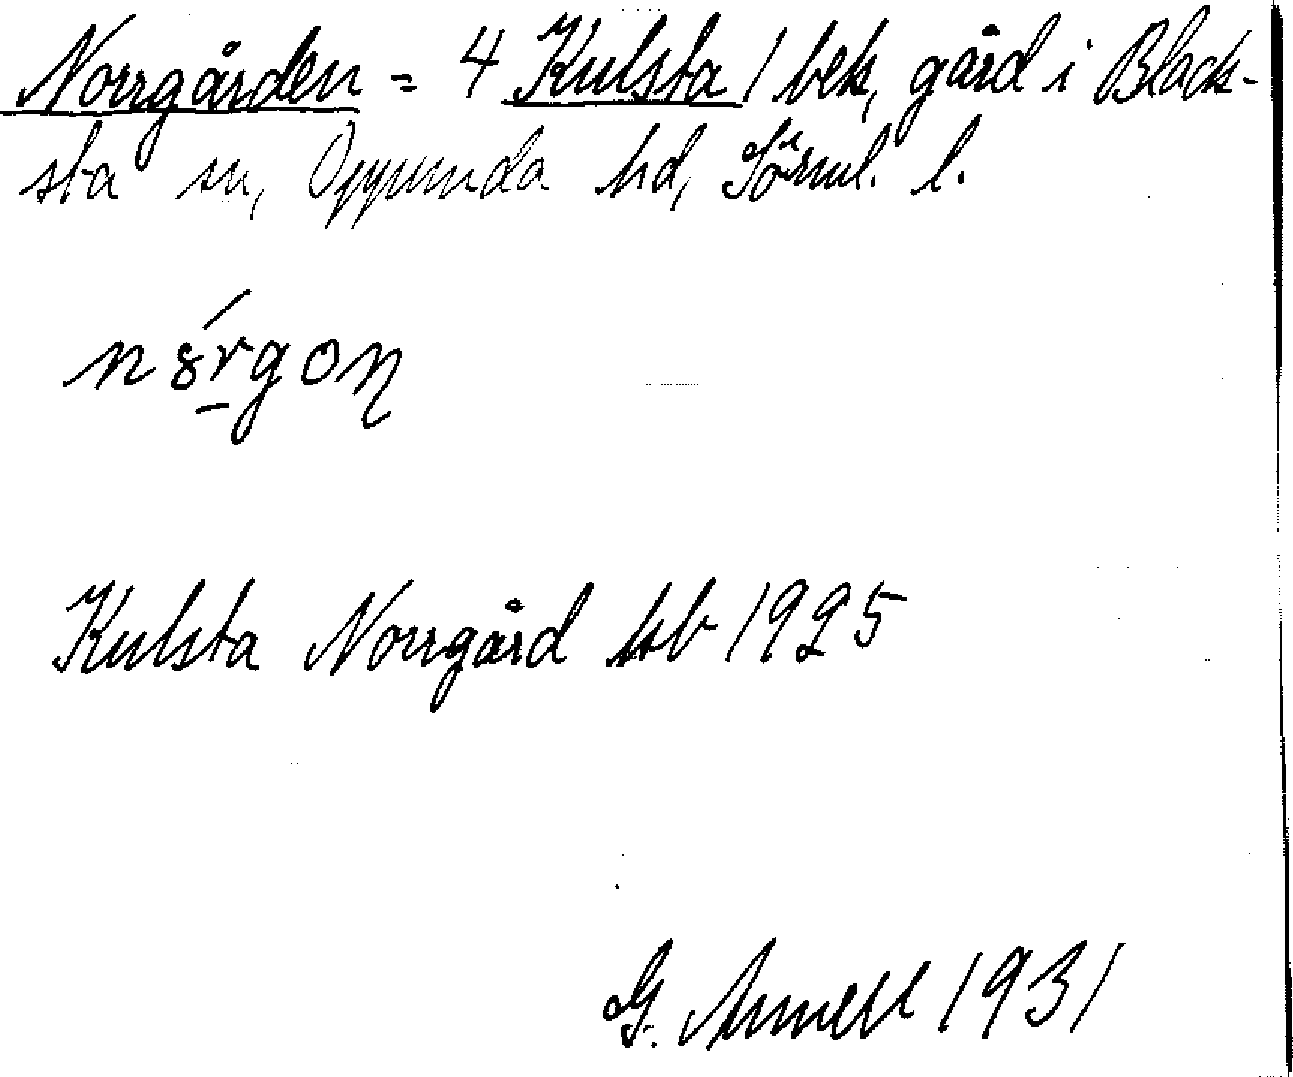 Norrgården = 4 Kulsta / bek, gård i Black-
sta sn, Oppunda hd, Sörml. l.
Kulsta Norrgård kb 1925
G. Annell 1931